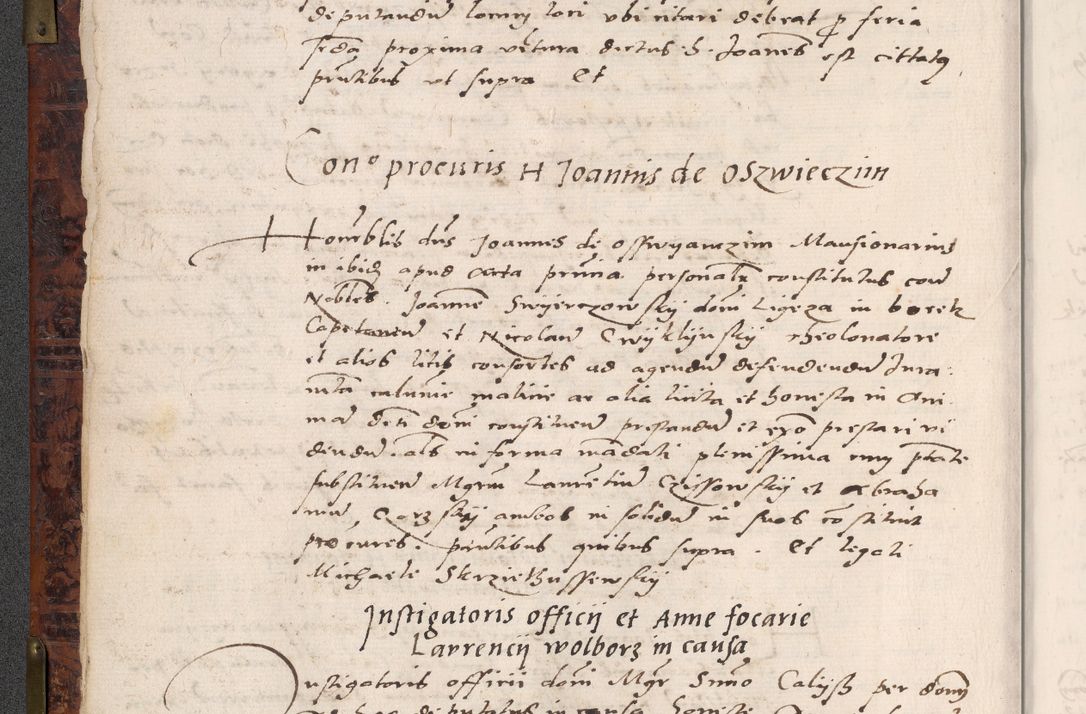 deputandum locumque loci ubi citari debeat pro feria
secunda proxima ventura dictus h. Joannes est cittatus
presentibus ut supra Et
Con° procuris H Joannis de Oszwieczim
Honorablis dns Joannes de Osswyanczim Mansionarius
in ibid apud acta prima personalr constitutus cont
Nobles . Joannem Swyerczowsky domini Ligeza in boresk
Capetaneum et Nicolaum Cwyklynsky theolonatore
et alios litis consortes ad agendum defendendum Jura
mta calumnie malicie ac alia licita et honesta in Ani
mam dicti domini constituen prestandum et ex° prestari vi
dendum . als in forma mandati plenissima cum ptate
substituen Mgrum Laurentium Czissowsky et Abraha
mum Gorzsky ambos in solidum in suos constituit
procures . presentibus quibus supra . Et legali
Michaele Skrziethussewsky
Instigatoris officij et Anne focarie
Lavrencij wolborz in causa
Instigatoris officii domini Mgr Simo Calijsz per domi